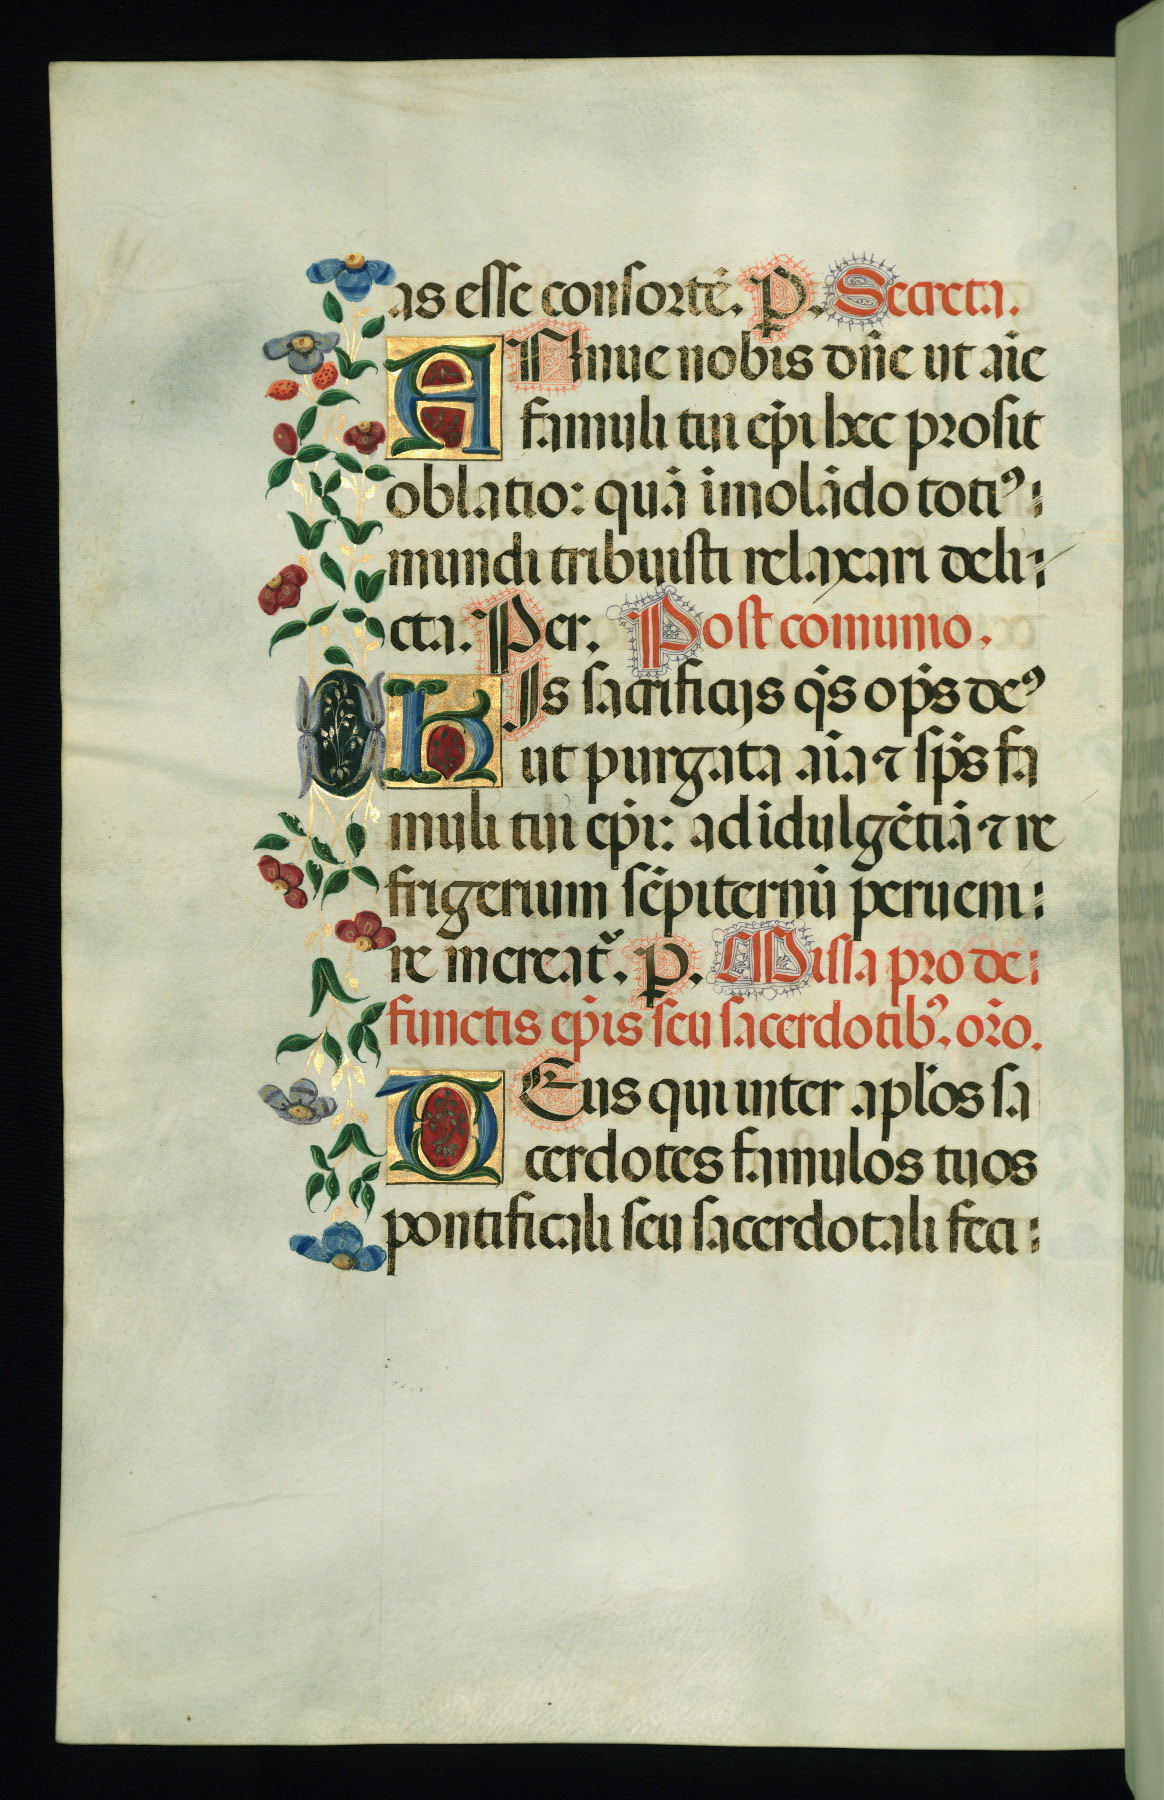 as esse consortē. P. Secreta.
ANnue nobis dñe ut aīe
famuli tui ep̄i hec prosit
oblatio: quā īmolādo totiꝰ:
mundi tribuisti relaxari deli:
cta. Per. Post comunio.
hIs sacrificijs q̄s op̄s deꝰ
ut purgata aīa ⁊ sp̄s fa
muli tui ep̄i: ad īdulgētiā ⁊ re
frigerium sēpiternū peruem:
re mereat᷑. p. Missa pro de:
functis ep̄is seu sacerdotibꝰ. or̄o.
DEus qui inter apl̄os sa
cerdotes famulos tuos
pontificali seu sacerdotali feci: